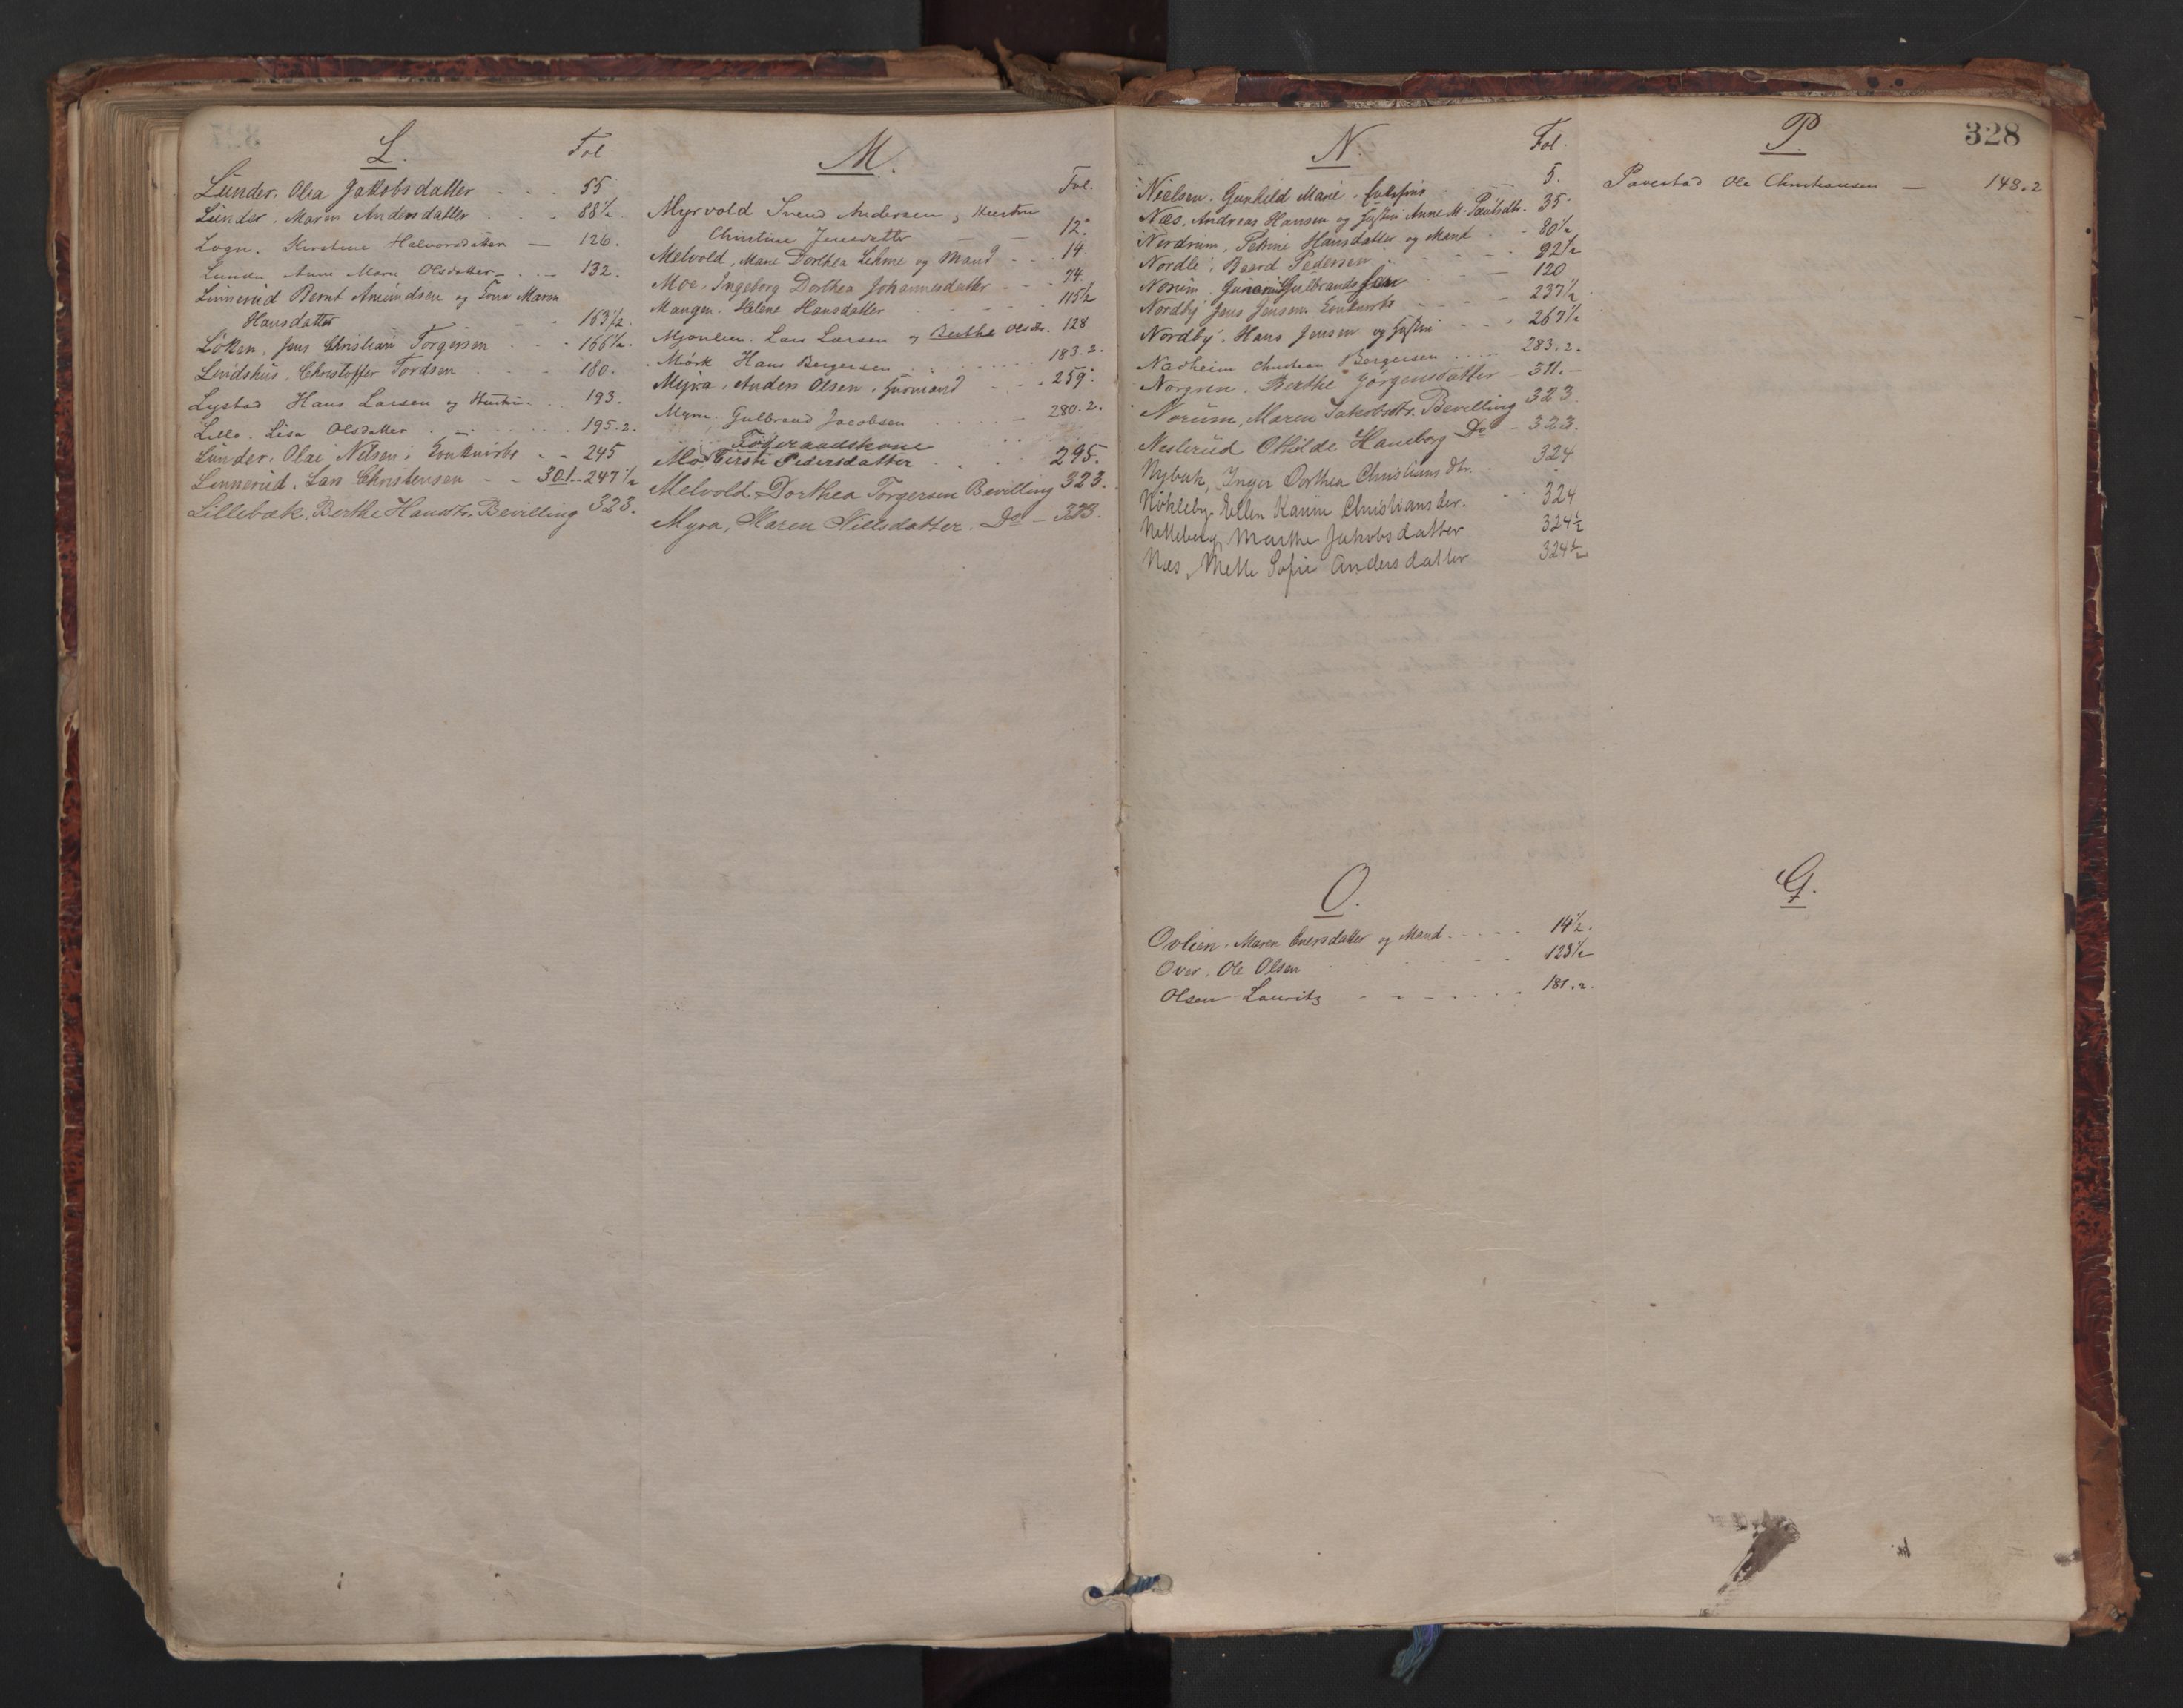 L.
Fol
Lunder, Olea Jakobsdatter - - - 55
Lunder, Maren Andersdatter - - - 88½
Logn. Kirstine Halvorsdatter — 126.
Lunde Anne Marie Olsdatter - . - 132.
Linnerud Bernt Amundsen og Kone Maren
Hansdatter - - 163½.
Löken, Jens Christian Torgersen - - - 166½.
Lindshus, Christoffer Tordsen - - - 180.
Lystad Hans Larsen og Hustru - . . 193.
Lillo. Lisa Olsdatter . - . . . . . 195.2.
Lunder, Olae Nilsen, Enkemrke - - 245
Linnerud, Lars Christensen - - 301 - 247½
Lillebæk, Berthe Hansdtr. Bevilling 323.
M.
Fol.
Myrvold Svend Andersen og Hustru
Christine Jensdatter - - 12.
Melvold, Mare Dorthea Lehne og Mand - - - 14
Moe, Ingeborg Dorthea Johannesdatter - - - 74
Mangen. Helene Hansdatter - - - 115½
Mjonlien. Lars Larsen og Berthe Olsdtr. 128
Mörk Hans Bergersen . . . . . . . 183.2.
Myra, Anders Olsen, Gaardmand - - - 259.
Myra. Gulbrand Jacobsen . . . . . - 280.2.
Föderaadskone
Mo, Kirsti Pedersdatter . . . 295.
Melvold, Dorthea Torgersen Bevilling 323.
Myra, Karen Nilsdatter. Do - 323.
N.
Fol.
Nielsen, Gunhild Marie, - - - 5.
Næs, Andreas Hansen og Hustru Anne M. Paulsdtr. 35
Nerdrum, Petrine Hansdatter og Mand - - 80½
Nordli, Baard Pedersen - - - 92½
Norum, Gulbrandsen - - 120
Nordby Jens Jensen Enkemrke - - - 237½
Nordby, Hans Jensen og Hustru - - - 267½
Nadheim Christian Bergersen . . . . . 283.2.
Norgren. Berthe Jörgensdatter - 311.-
Norum, Maren Jakobsdtr. Bevilling 323.
Neslerud Othilde Haneborg Do - 323.
Nybæk, Inger Dorthea Christiansdtr. . 324
Nökleby Ellen Karine Christiansdtr. - - 324
Nilleberg, Marthe Jakobsdatter 324½
Næs, Mette Sofie Andersdatter 324½
O.
Ovlien, Maren Eversdatter og Mand - - - - - 14½.
Over, Ole Olsen - - - - - - 123½
Olsen Lauritz - - - - - - - 181.2.
P.
328
Pavestad Ole Christiansen — 148.2
Q.